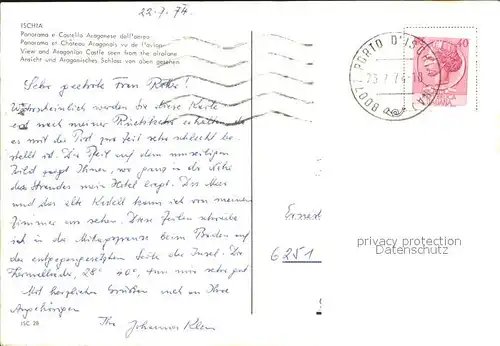 22.7.74.
ISCHIA
Panorama e Castello Aragonese dall'aereo
Panorama et Château Aragonais vu de l'avion
View and Aragonian Castle seen from the airplane
Ansicht und Aragonisches Schloss von oben gesehen
80077 PORTO D'ISCHIA (NA)
23.7.74.10
40
Sehr geehrte Frau
Wahrscheinlich werden Sie diese Karte
erst nach meiner Rückkehr erhalten, da
es mit der Post zur Zeit sehr schlecht be-
stellt ist. Der Pfeil auf dem umseitigen
Bild zeigt Ihnen, wo ganz in der Nähe
des Strandes mein Hotel liegt. Das Meer
und das alte Kastell kann ich von meinem
Zimmer aus sehen. Diese Zeilen schreibe
ich in der Mittagspause beim Baden auf
der entgegengesetzten Seite der Insel. Die
Thermalbäder, 28° 40°, tun mir sehr gut
Mit herzlichen Grüßen auch an Ihre
Angehörigen
Ihr Johannes Klein
Ernest
6251
privacy protection
Datenschutz
ISC 28